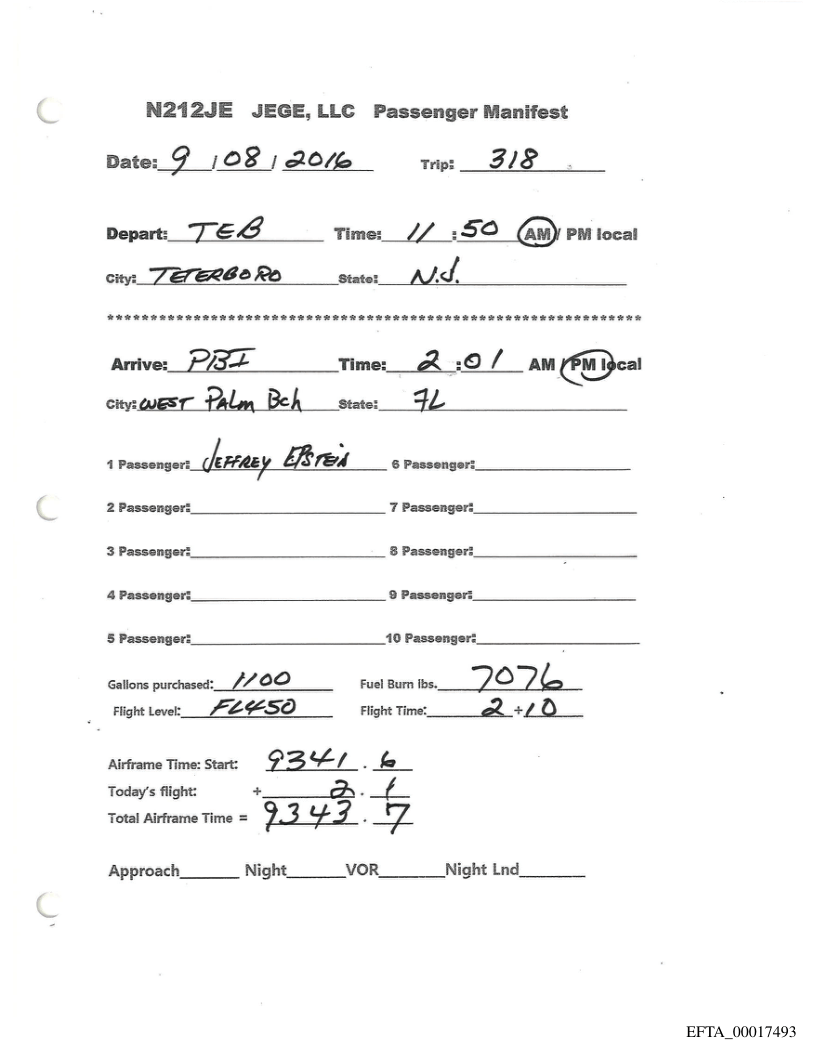 N212JE JEGE, LLC Passenger Manifest
Date: 9 / 08 / 2016 Trip: 318
Depart: TEB Time: 11 : 50 AM / PM local
City: TETERBORO State: N.J.
************************************************************
Arrive: PBI Time: 2 : 01 AM / PM local
City: WEST PALM BCH State: FL
1 Passenger: JEFFREY EPSTEIN 6 Passenger:
2 Passenger: 7 Passenger:
3 Passenger: 8 Passenger:
4 Passenger: 9 Passenger:
5 Passenger: 10 Passenger:
Gallons purchased: 1100 Fuel Burn lbs. 7076
Flight Level: FL450 Flight Time: 2 + 10
Airframe Time: Start: 9341 . 6
Today's flight: + 2 . 1
Total Airframe Time = 9343 . 7
Approach Night VOR Night Lnd
EFTA_00017493